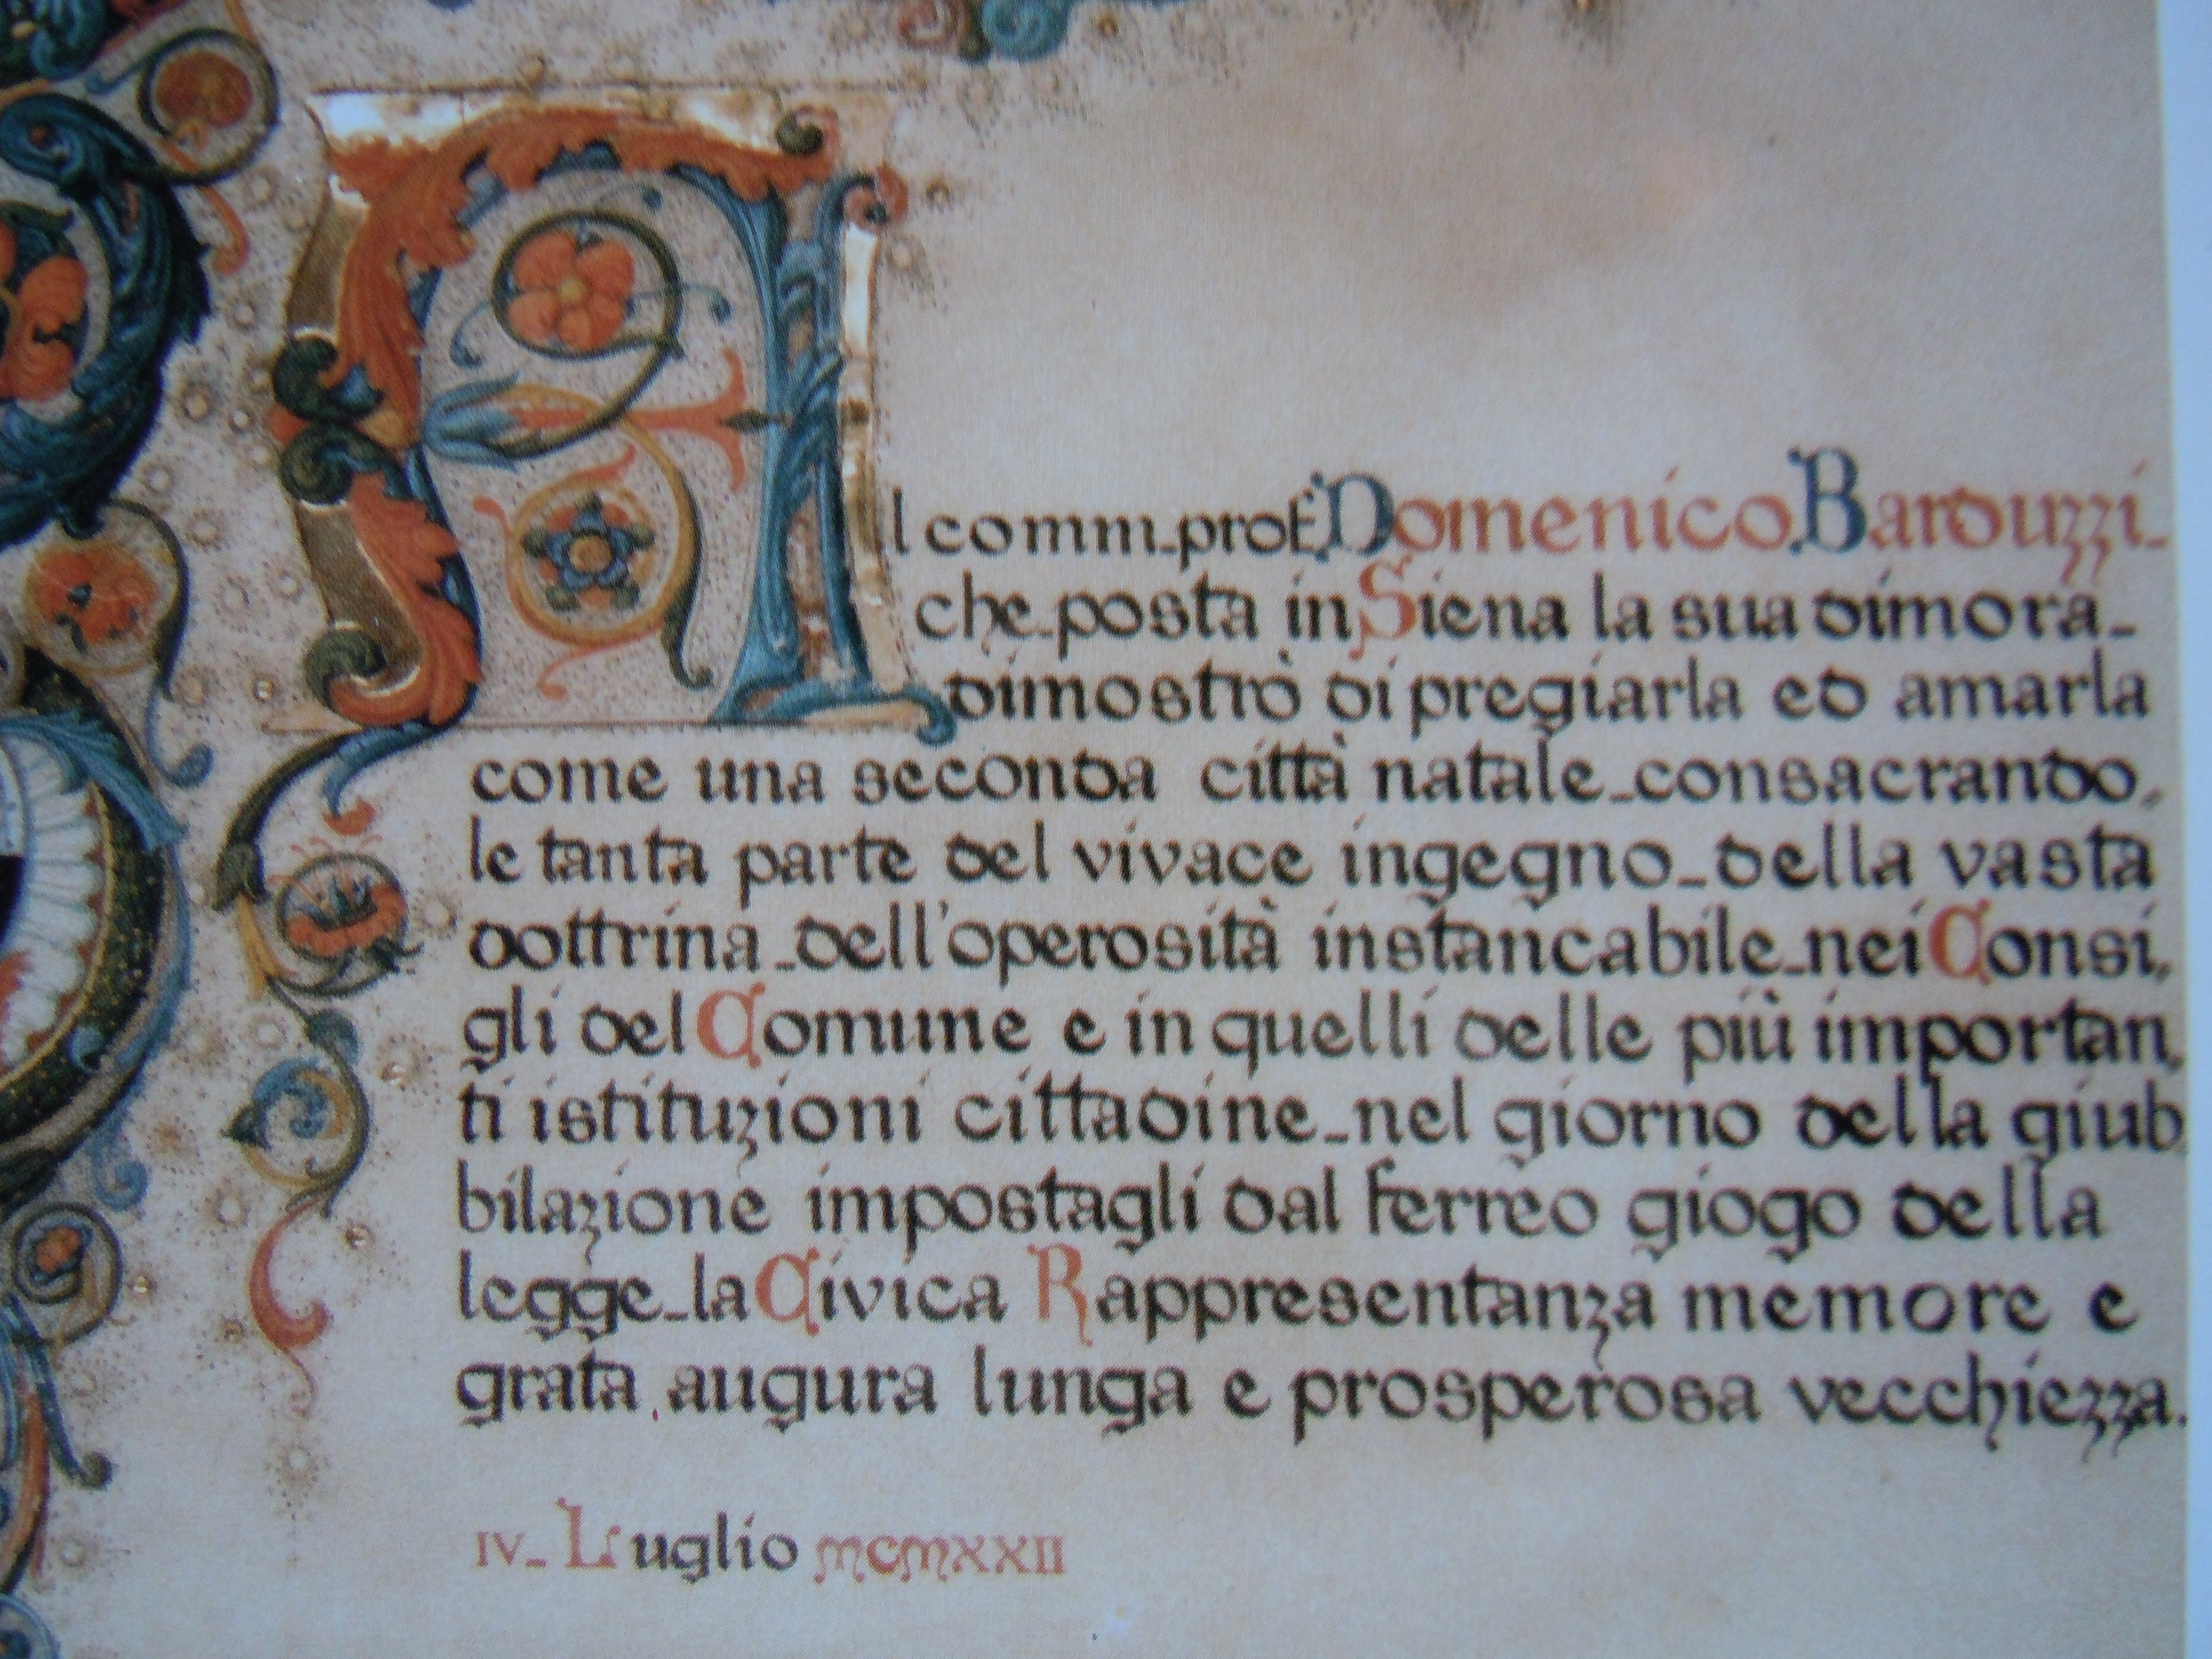 Al comm. prof. Domenico Barduzzi-
che-posta in Siena la sua dimora-
dimostrò di pregiarla ed amarla
come una seconda città natale-consacrando,
le tanta parte del vivace ingegno-della vasta
dottrina-dell'operosità instancabile-nei Consi,
gli del Comune e in quelli delle più importan,
ti istituzioni cittadine-nel giorno della giub
bilazione impostagli dal ferreo giogo della
legge-la Civica Rappresentanza memore e
grata augura lunga e prosperosa vecchiezza.
IV-Luglio MCMXXII